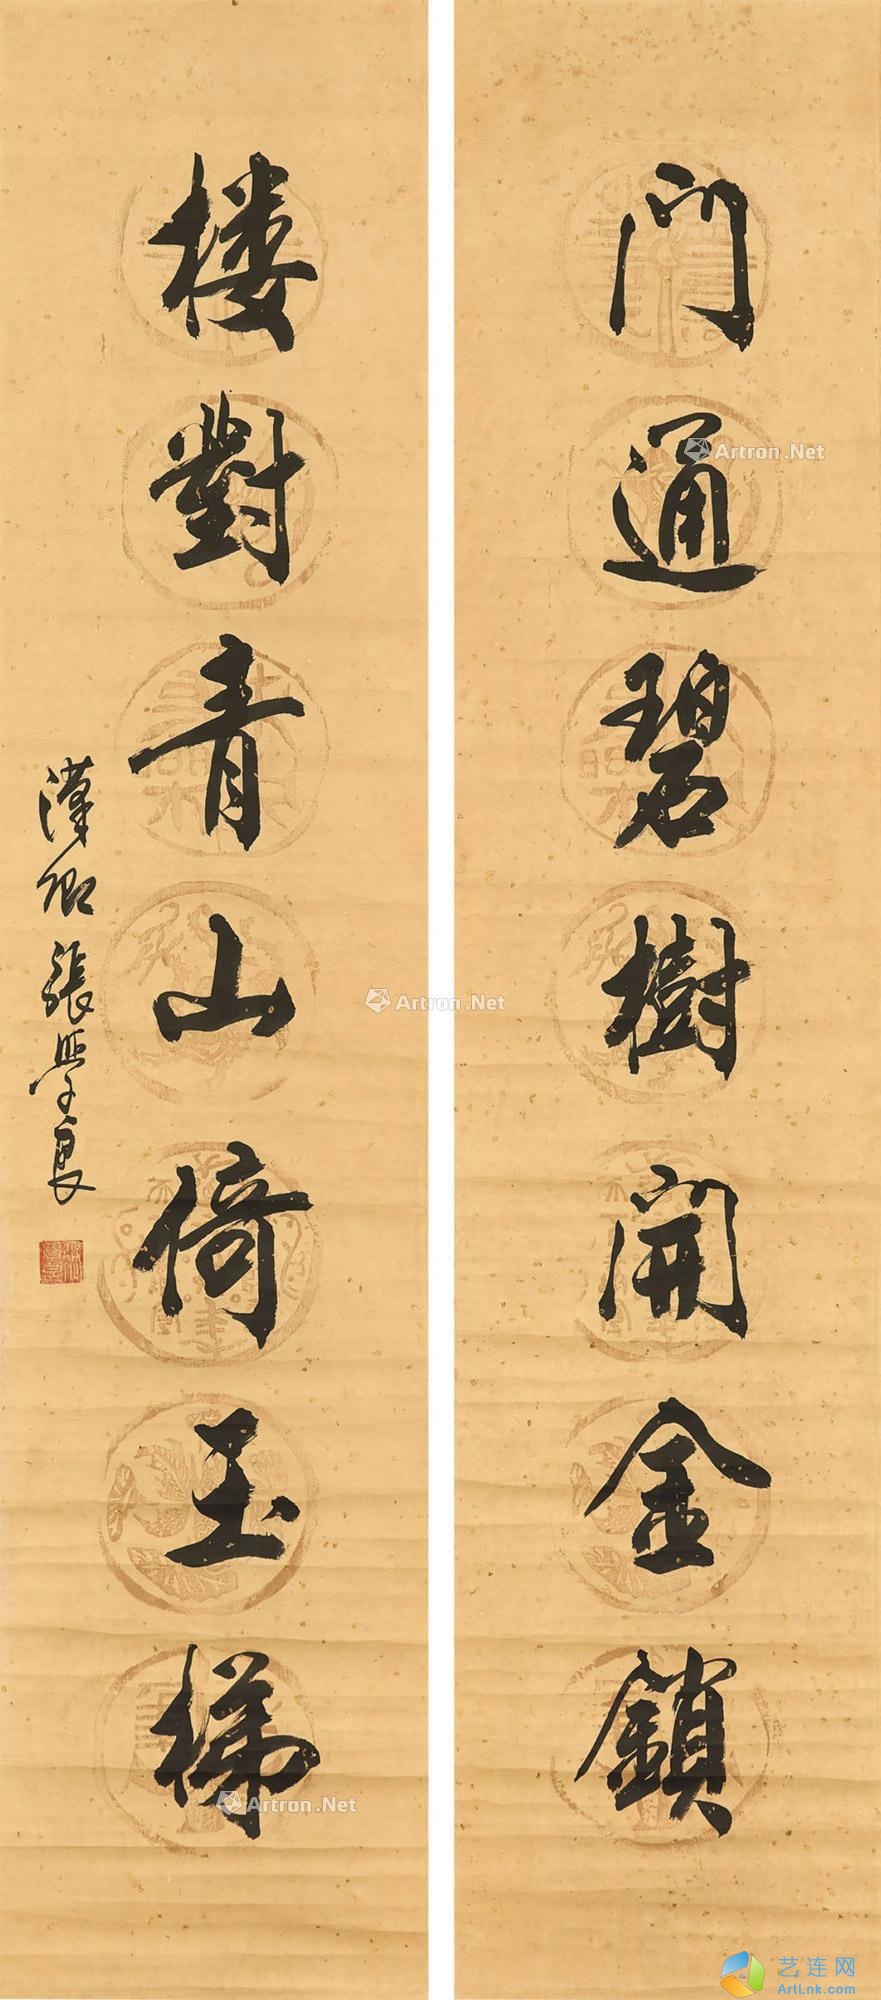 門通碧樹開金鎖
楼對青山倚玉梯
漢卿張學良
Artron.Net
Artron.Net
Artron.Net
艺连网
ArtLnk.com